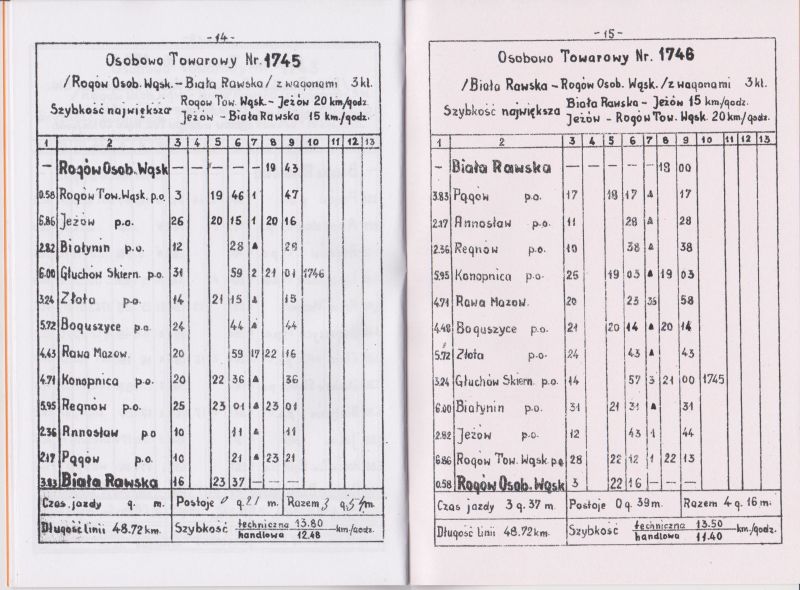 - 14 -
Osobowo Towarowy Nr. 1745
/Rogów Osob. Wąsk. - Biała Rawska/ z wagonami 3 kl.
Szybkość największa Rogów Tow. Wąsk. - Jeżów 20 km/godz.
Jeżów - Biała Rawska 15 km/godz.
1 2 3 4 5 6 7 8 9 10 11 12 13
— Rogów Osob. Wąsk — — — — — 19 43
0.58 Rogów Tow. Wąsk. p.o. 3 19 46 1 47
6.86 Jeżów p.o. 26 20 15 1 20 16
2.82 Białynin p.o. 12 28 ▲ 28
6.00 Głuchów Skiern. p.o. 31 59 2 21 01 1746
3.24 Złota p.o. 14 21 15 ▲ 15
5.72 Boguszyce p.o. 24 44 ▲ 44
4.43 Rawa Mazow. 20 59 17 22 16
4.71 Konopnica p.o. 20 22 36 ▲ 36
5.95 Regnów p.o. 25 23 01 ▲ 23 01
2.36 Annosław p.o 10 11 ▲ 11
2.17 Pągów p.o. 10 21 ▲ 23 21
3.83 Biała Rawska 16 23 37 — — —
Czas jazdy g. m. Postoje 0 g. 21 m. Razem 3 g. 54 m.
Długość linii 48.72 km. Szybkość techniczna 13.80 km/godz.
handlowa 12.48
- 15 -
Osobowo Towarowy Nr. 1746
/Biała Rawska - Rogów Osob. Wąsk./ z wagonami 3 kl.
Szybkość największa Biała Rawska - Jeżów 15 km/godz.
Jeżów - Rogów Tow. Wąsk. 20 km/godz.
1 2 3 4 5 6 7 8 9 10 11 12 13
— Biała Rawska — — — — — 18 00
3.83 Pągów p.o. 17 18 17 ▲ 17
2.17 Annosław p.o. 11 28 ▲ 28
2.36 Regnów p.o. 10 38 ▲ 38
5.95 Konopnica p.o. 25 19 03 ▲ 19 03
4.71 Rawa Mazow. 20 23 35 58
4.48 Boguszyce p.o. 21 20 14 ▲ 20 14
5.72 Złota p.o. 24 43 ▲ 43
3.24 Głuchów Skiern. p.o. 14 57 3 21 00 1745
6.00 Białynin p.o. 31 21 31 ▲ 31
2.82 Jeżów p.o. 12 43 1 44
6.86 Rogów Tow. Wąsk p.o. 28 22 12 1 22 13
0.58 Rogów Osob. Wąsk 3 22 16 — — —
Czas jazdy 3 g. 37 m. Postoje 0 g. 39 m. Razem 4 g. 16 m.
Długość linii 48.72 km. Szybkość techniczna 13.50 km/godz.
handlowa 11.40